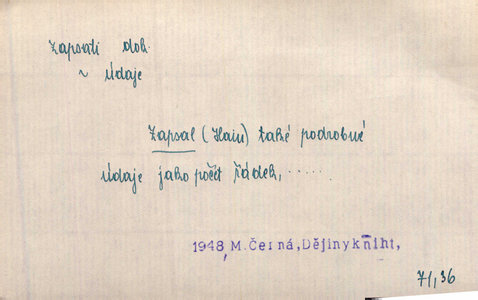 zapsati dok.
~ údaje
Zapsal (Hain) také podrobné
údaje jako počet řádek, ......
1948, M. Černá, Dějiny kniht,
71,36